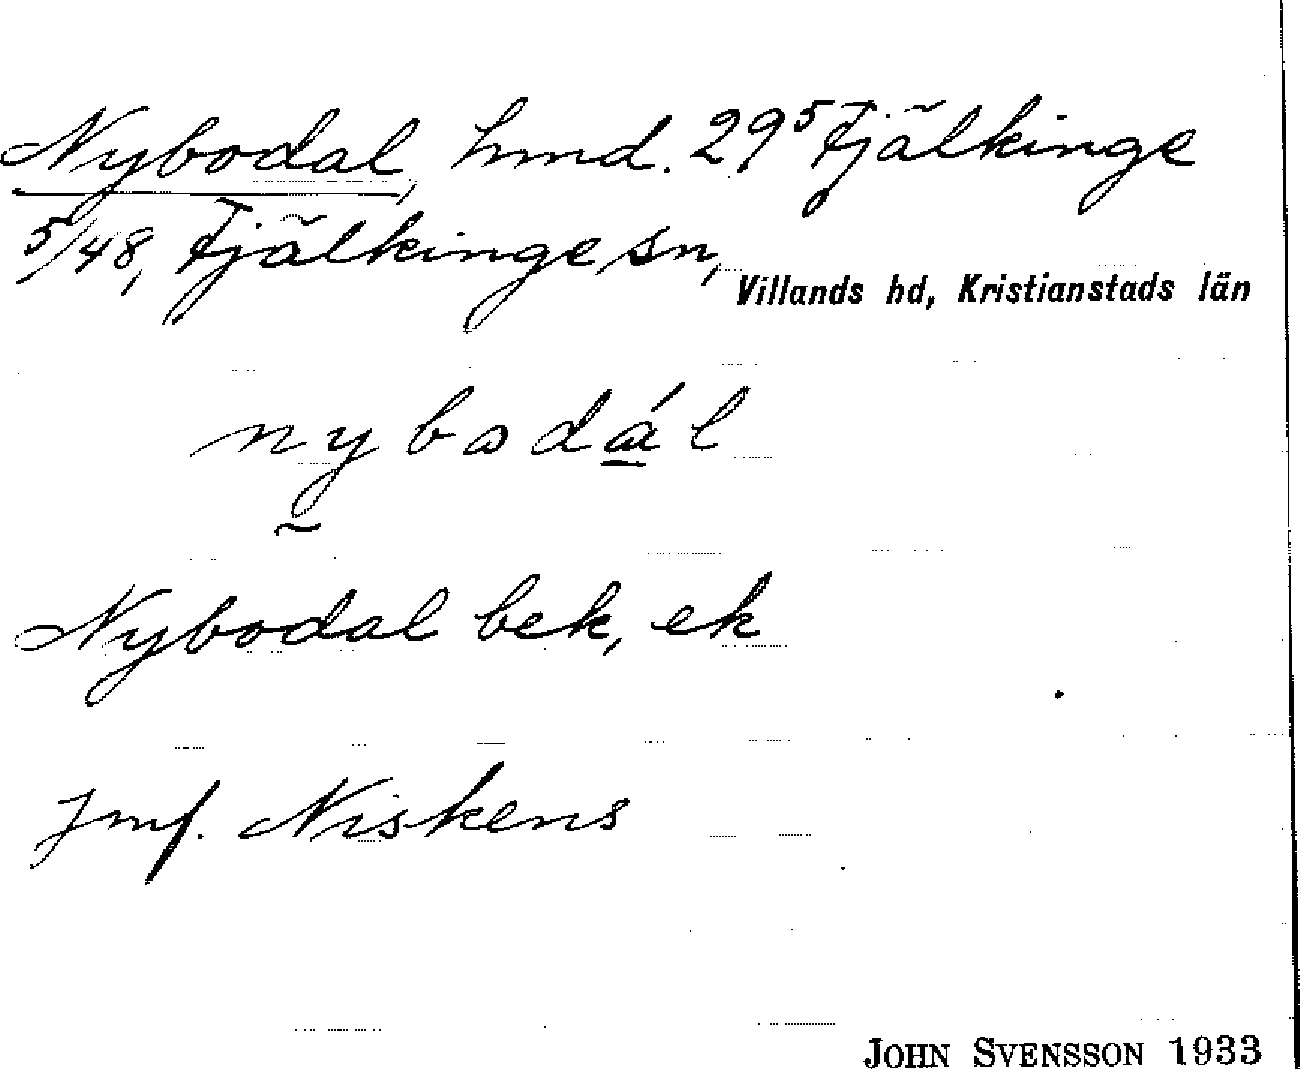 Nybodal, hmd. 29⁵ Fjälkinge
5/48, Fjälkinge sn,
Villands hd, Kristianstads län
nybodál
Nybodal bek, ek
Jmf. Niskens
JOHN SVENSSON 1933